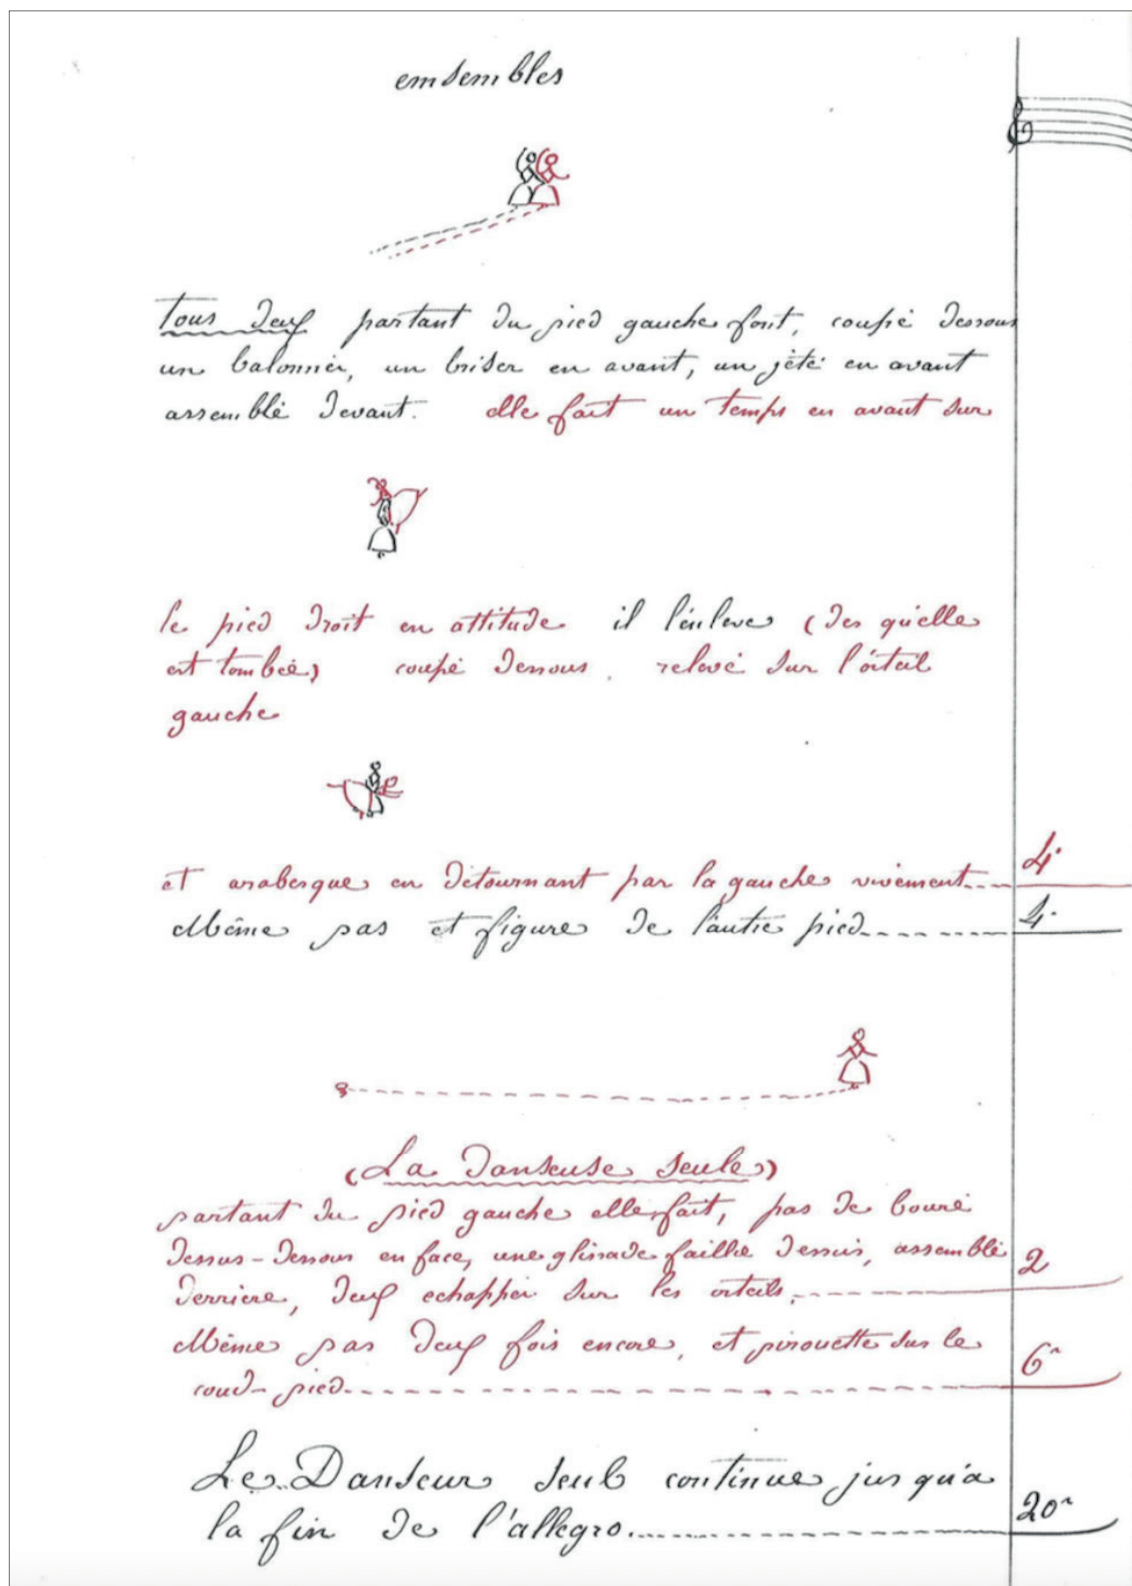 emsembles
Tous Deux partant du pied gauche font, coupé dessous
un balonnier, un briser en avant, un jêté en avant
assemblé devant. elle fait un temps en avant sur
le pied droit en attitude il l'énleve (des qu'elle
est tombée) coupé dessous. relevé sur l'órteil
gauche
et arabesque en détournant par la gauche vivement 4
Même pas et figure de l'autre pied 4
(La Danseuse seule)
partant du pied gauche elle fait, pas de bouré
dessus-dessous en face, une glissade faillie dessus, assemblé
derriere, deux echapper sur les orteils, 2
Même pas deux fois encore, et pirouette sur le
coud-pied 6
Le Danseur seul continue jusqu'a
la fin de l'allegro. 20